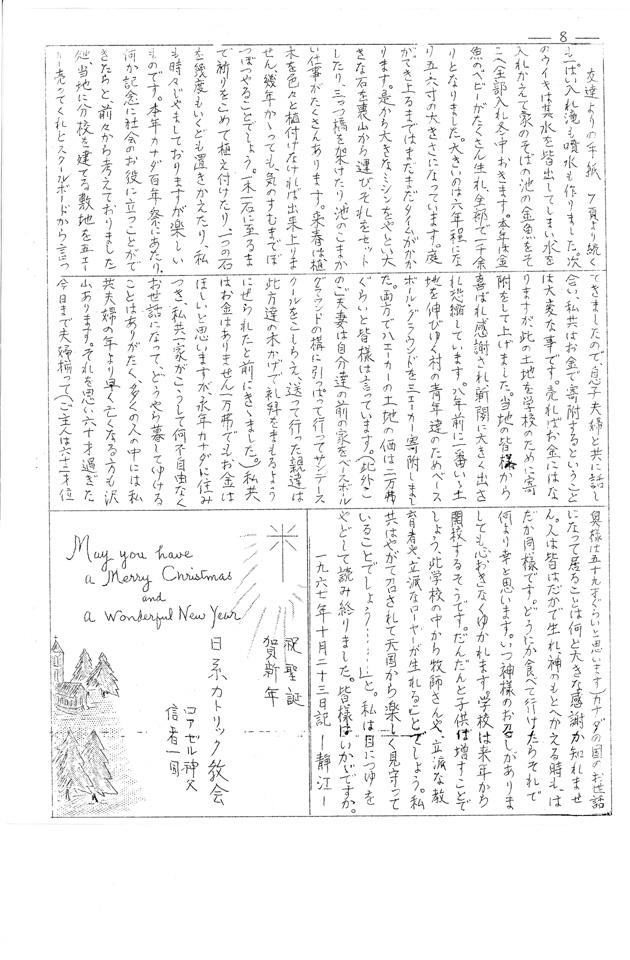 8
友達よりの手紙 7頁より続く
も一ぱい入れ滝も噴水も作りました。次
のウイキは其水を皆出してしまい水を
入れかえて家のそばの池の金魚をそ
こへ全部入れ冬中おきます。本年は金
魚のベビーがたくさん生れ全部で二千余
りとなりました。大きいのは六年程にな
り五、六寸の大きさになっています。庭
ができ上るまではまだまだタイムがかか
ります。是から大きなミシンをやとい大
きな石を裏山から運びそれをセット
したり、三つ橋を架けたり、池のこまか
い仕事がたくさんあります。来春は植
木を色々と植付けなければ出来上りま
せん。幾年かゝっても、気のすむまでぼ
つぼつやることでしょう。一木一石に至るま
で祈りをこめて植え付けたり、一つの石
を幾度もいくども置きかえたり、私
も時々じゃましておりますが楽しい
ものです。本年カナダ百年祭にあたり、
何か記念に社会のお役に立つことがで
きたらと前々から考えておりました
処、当地に分校を建てる敷地を五エー
カー売ってくれとスクールボードから言っ
てきましたので、息子夫婦と共に話し
合い、私共はお金で寄附するということ
は大変な事です。売ればお金にはな
りますが此の土地を学校のために寄
附をして上げました。当地の皆様から
喜ばれ感謝され、新聞に大きく出さ
れ恐縮しています。八年前に一番いい土
地を伸びゆく村の青年達のためベース
ボール・グラウンドを三エーカー寄附しまし
た。両方で八エーカーの土地の価は二万弗
ぐらいと皆様は言っています。(此外こ
のご夫妻は自分達の前の家をベースボール
グラウンドの横に引っぱって行ってサンデース
クールをこしらえ、送って行った親達は
此方達の木かげで礼拝をまもるよう
にせられたと前にききました。)私共
はお金はありません。一万弗でもお金は
ほしいと思いますが永年カナダに住み
つき、私共一家がこうして何不自由なく
お世話になって、どうやら暮してゆける
ことはありがたく、多くの人の中には私
共夫婦の年より早く亡くなる方も沢
山あります。それを思い六十才過ぎた
今日まで夫婦揃って(ご主人は六十二才位
奥様は五十九才ぐらいと思います)カナダの国のお世話
になって居ることは何と大きな感謝か知れませ
ん。人は皆はだかで生れ、神のもとへかえる時も、は
だか同様です。どうにか食べて行けたらそれで
何より幸と思います。いつ神様のお召しがありま
しても心おきなくゆかれます。学校は来年から
開校するそうです。だんだんと子供は増すことで
しょう、此学校の中から牧師さんや、立派な教
育者や立派なローヤーが生れることでしょう。私
共はやがて召されて天国から楽しく見守って
いることでしょう……」と。私は目につゆを
やどして読み終りました。皆様はいかゞですか。
一九六七年十月二十三日記 ー静江ー
May you have
a Merry Christmas
and
a Wonderful New Year
祝聖誕
賀新年
日系カトリック教会
ロアゼル神父
信者一同